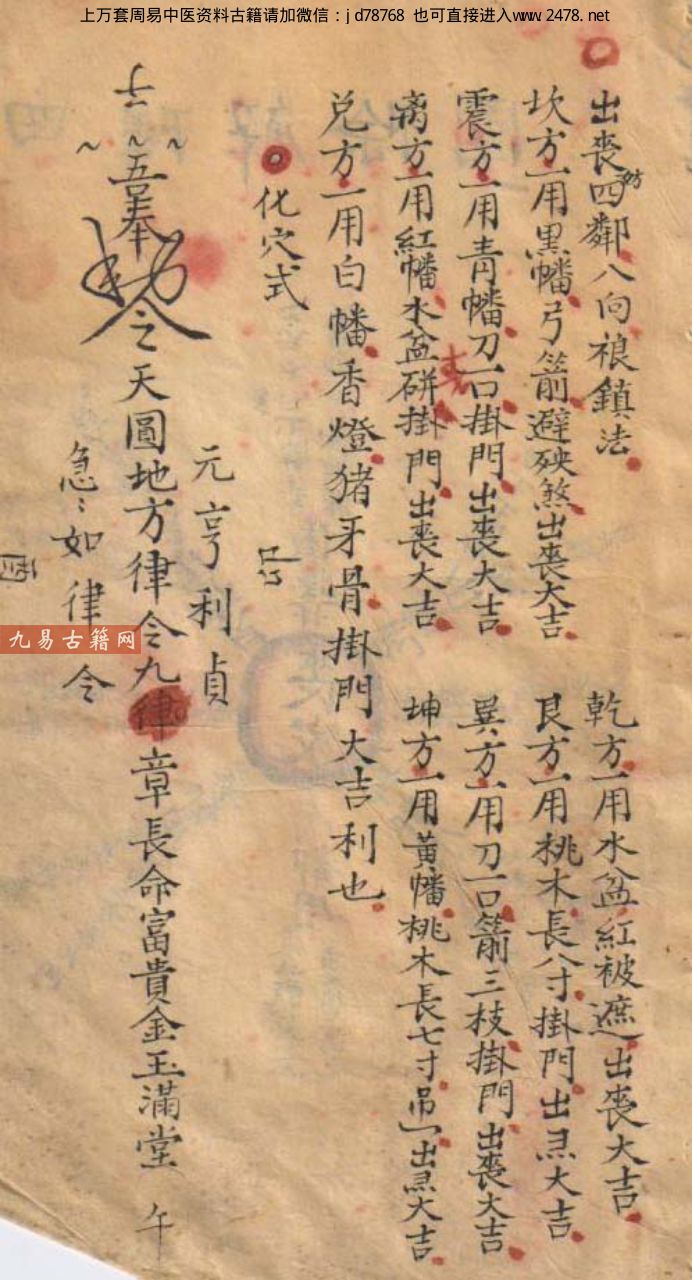 上万套周易中医资料古籍请加微信：jd78768 也可直接进入www.2478.net
出喪四鄰八向禳鎮法
坎方一用黑幡弓箭避殃煞出喪大吉
乾方一用水盆紅被遮出喪大吉
艮方一用桃木長八寸掛門出喪大吉
震方一用青幡刀一口掛門出喪大吉
巽方一用刀一口箭三枝掛門出喪大吉
离方一用紅幡水盆硑掛門出喪大吉
坤方一用黃幡桃木長七寸吊一出喪大吉
兑方一用白幡香燈猪牙骨掛門大吉利也
化穴式
元亨利貞
子
吾奉
令之天圓地方律令九章長命富貴金玉滿堂 午
急〻如律令
酉
九易古籍网